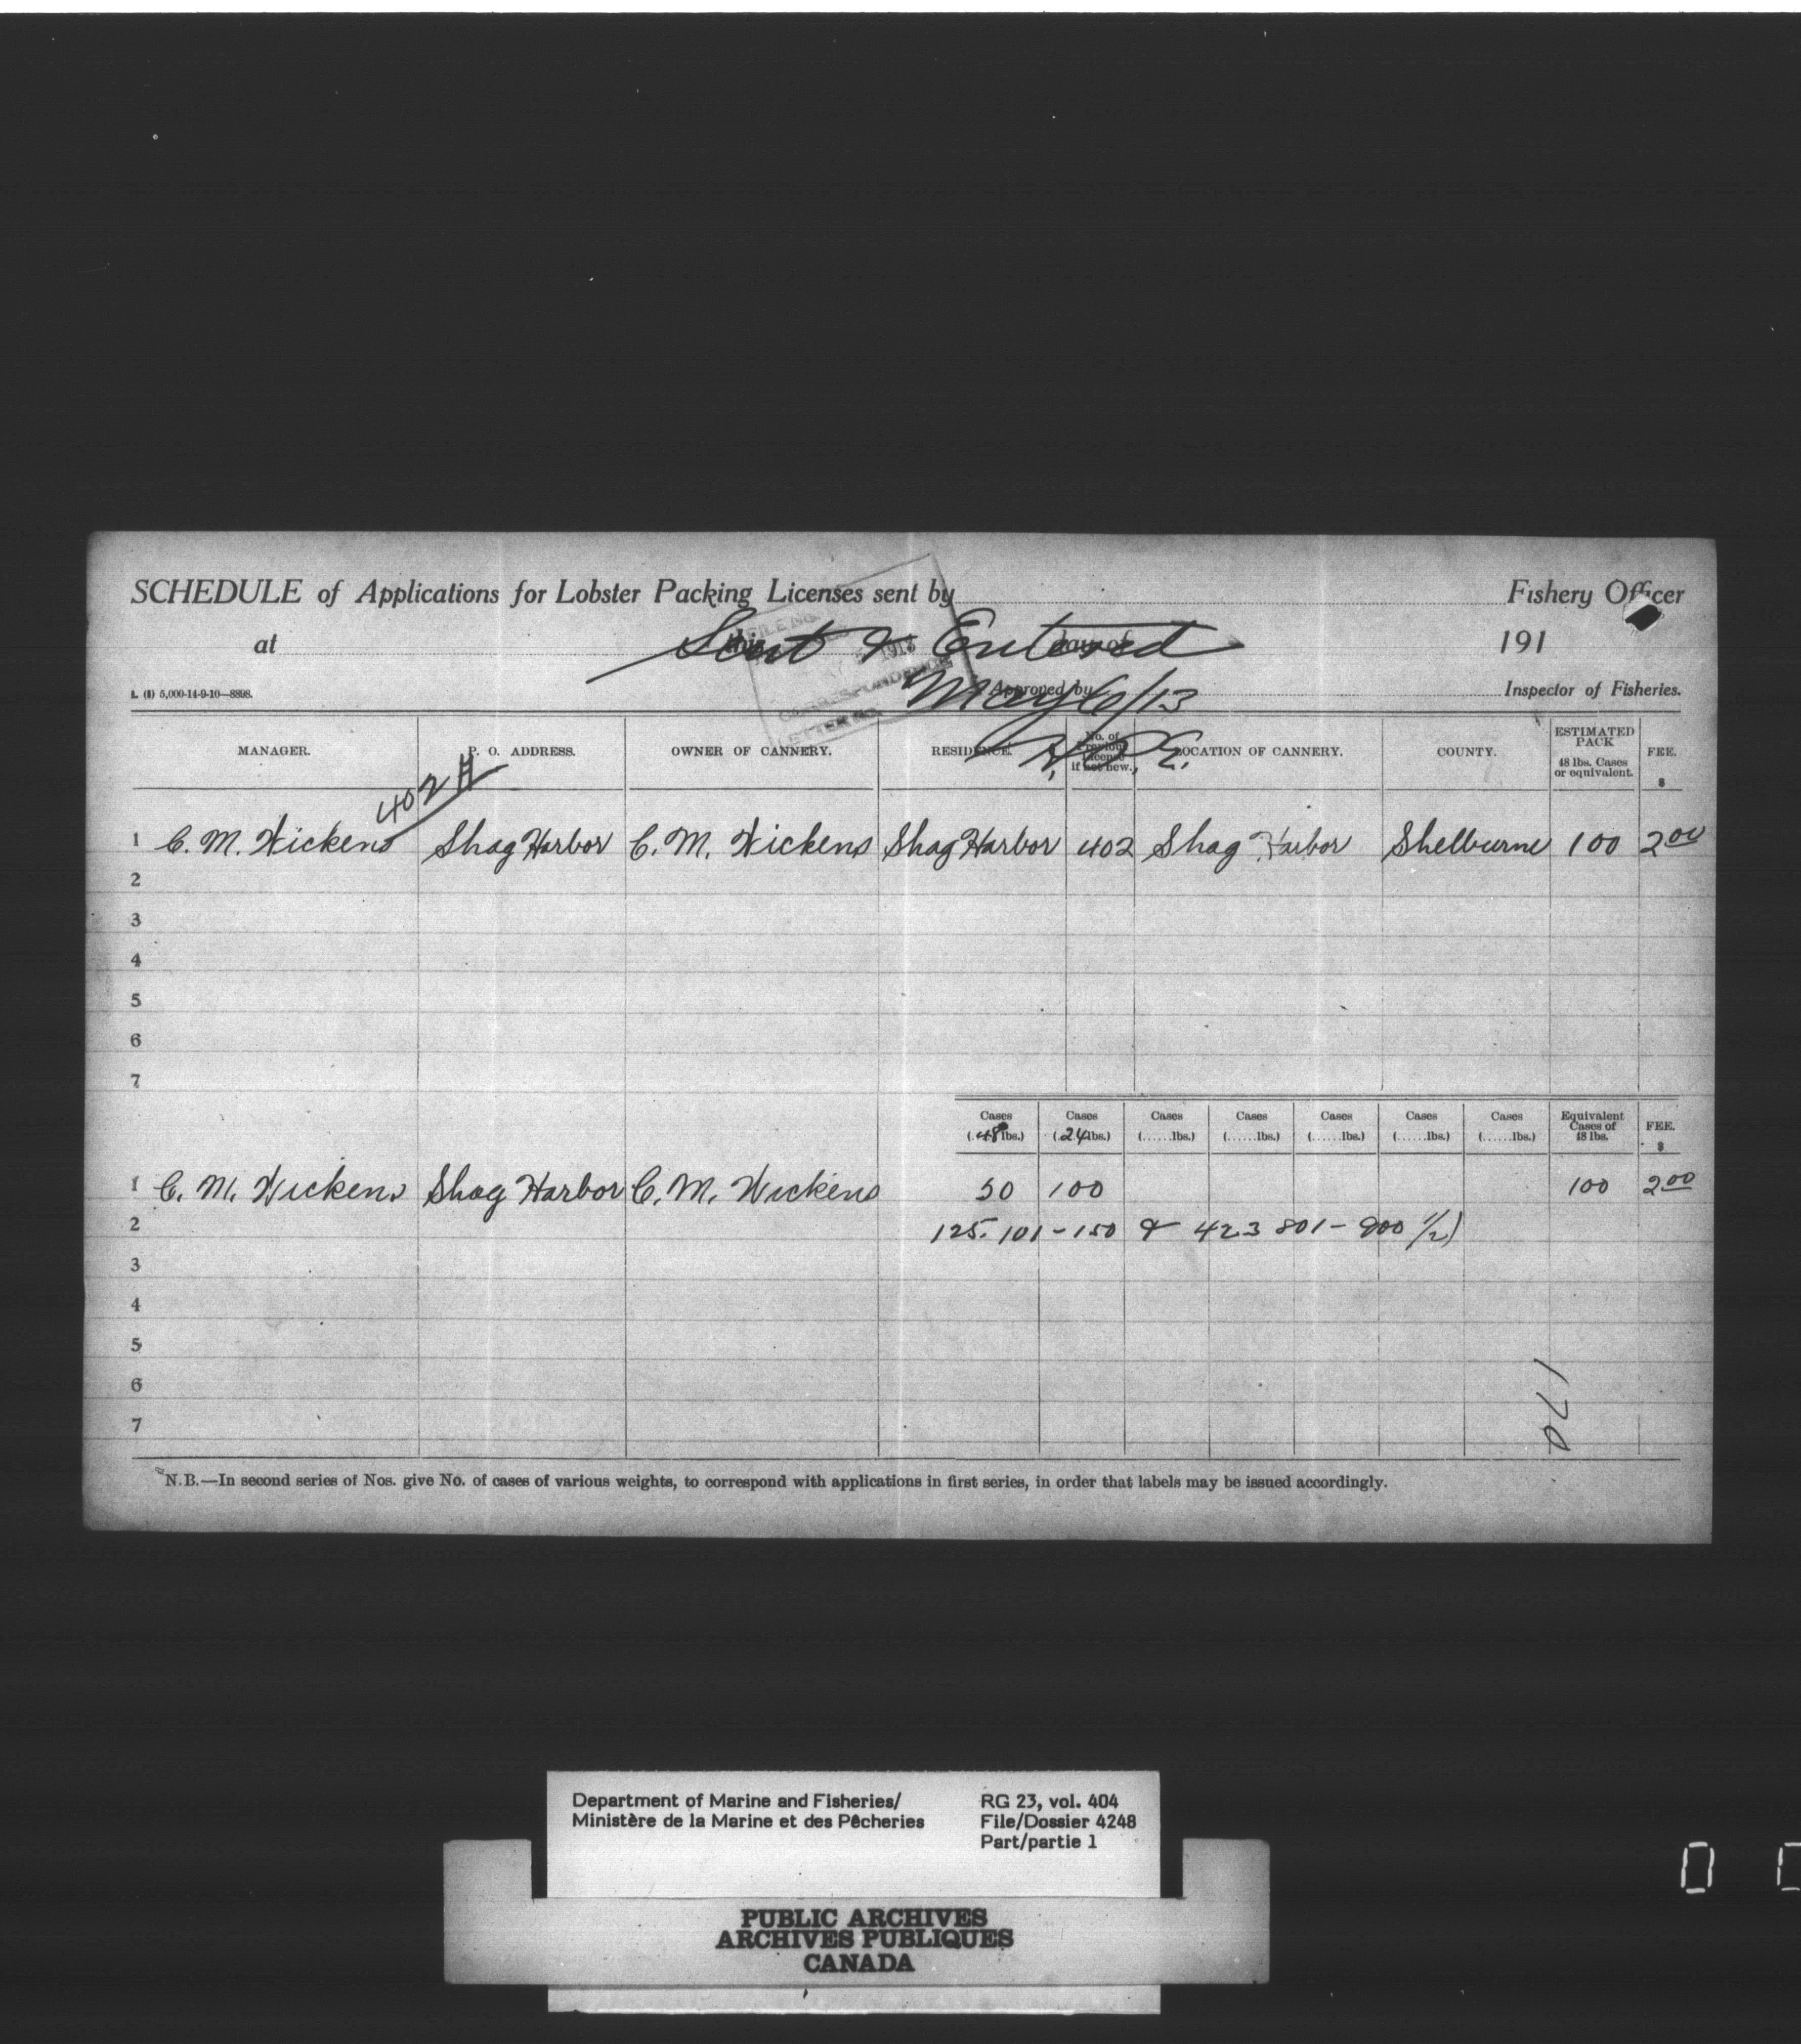 SCHEDULE of Applications for Lobster Packing Licenses sent by Fishery Officer
at this day of 191
Sent & Entered
FILE No.
1913
CORRESPONDENCE
LETTER No.
L. (B) 5,000-14-9-10—8898.
Approved by Inspector of Fisheries.
May 6/13
MANAGER. P. O. ADDRESS. OWNER OF CANNERY. RESIDENCE. No. of Previous License if not new. LOCATION OF CANNERY. COUNTY. ESTIMATED PACK 48 lbs. Cases or equivalent. FEE. $
402
1 C. M. Nickens Shag Harbor C. M. Nickens Shag Harbor 402 Shag Harbor Shelburne 100 2 00
2
3
4
5
6
7
Cases (48 lbs.) Cases (24 lbs.) Cases (......lbs.) Cases (......lbs.) Cases (......lbs.) Cases (......lbs.) Cases (......lbs.) Equivalent Cases of 48 lbs. FEE. $
1 C. M. Nickens Shag Harbor C. M. Nickens 50 100 100 2 00
2 125.101-150 & 423 801-900 1/2)
3
4
5
6
7
170
N.B.—In second series of Nos. give No. of cases of various weights, to correspond with applications in first series, in order that labels may be issued accordingly.
Department of Marine and Fisheries/ RG 23, vol. 404
Ministère de la Marine et des Pêcheries File/Dossier 4248
Part/partie 1
PUBLIC ARCHIVES
ARCHIVES PUBLIQUES
CANADA